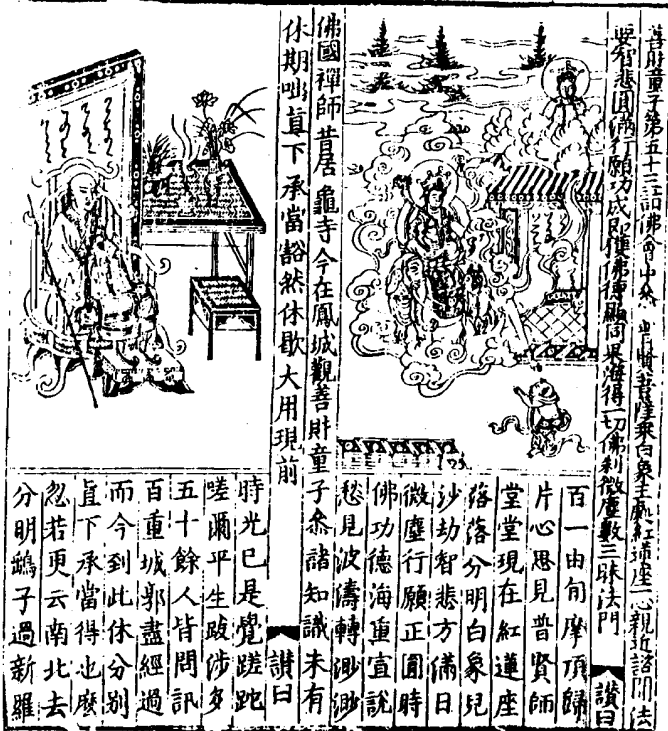 善財童子第五十三詣佛會中叅 普賢菩薩乘白象王處紅蓮座一心親近諮問法
要智悲圓滿行願功成即獲佛 願同果海得一切佛刹微塵數三昧法門 讚曰
百一由旬摩頂歸
片心思見普賢師
堂堂現在紅蓮座
落落分明白象兒
沙劫智悲方滿日
微塵行願正圓時
佛功德海重宣說
愁見波濤轉渺渺
佛國禪師昔居龜寺今在鳳城觀善財童子叅諸知識未有
休期咄直下承當豁然休歇大用現前 讚曰
時光已是覺蹉跎
嗟爾平生跋涉多
五十餘人皆問訊
百重城郭盡經過
而今到此休分別
直下承當得也麽
忽若更云南北去
分明鷂子過新羅